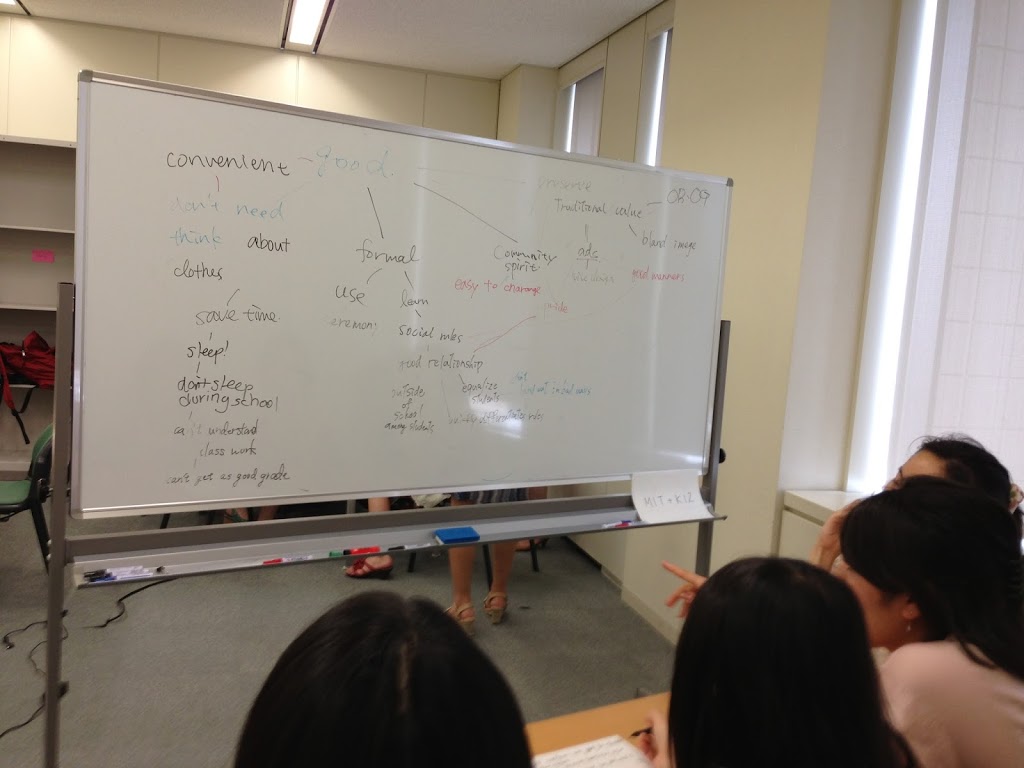 convenient - good.
don't need
think about
clothes
save time.
sleep!
don't sleep
during school
understand
class work
can't get as good grade
formal
use
ceremony
learn
social rules
good relationship
outside
of
school
among students
equalize
students
Community
spirit
easy to charange
pride
preserve
Traditional value - OB・OG
ads
bland image
good manners
MIT + K12